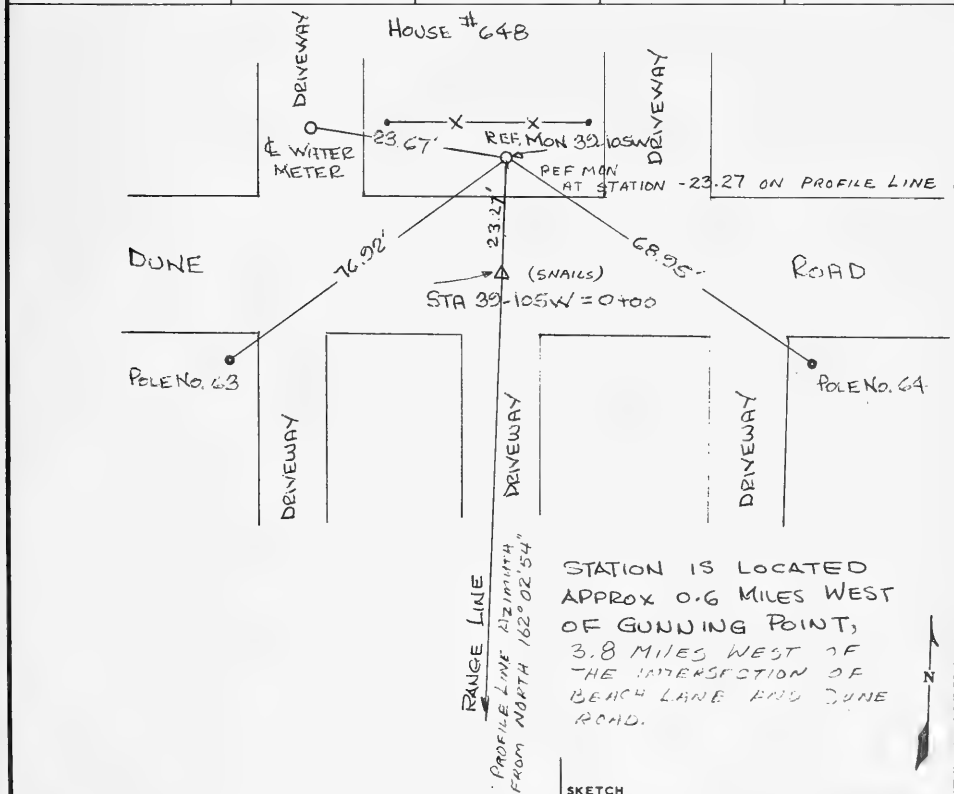 HOUSE #648
DRIVEWAY
DRIVEWAY
℄ WATER
METER
23.67'
REF. MON 39-105W
REF MON
AT STATION -23.27 ON PROFILE LINE
23.27'
DUNE
76.92'
68.95'
ROAD
(SNAILS)
STA 39-105W = 0+00
POLE No. 63
POLE No. 64
DRIVEWAY
DRIVEWAY
DRIVEWAY
RANGE LINE
PROFILE LINE AZIMUTH
FROM NORTH 162° 02' 54"
STATION IS LOCATED
APPROX 0.6 MILES WEST
OF GUNNING POINT,
3.8 MILES WEST OF
THE INTERSECTION OF
BEACH LANE AND DUNE
ROAD.
N
SKETCH